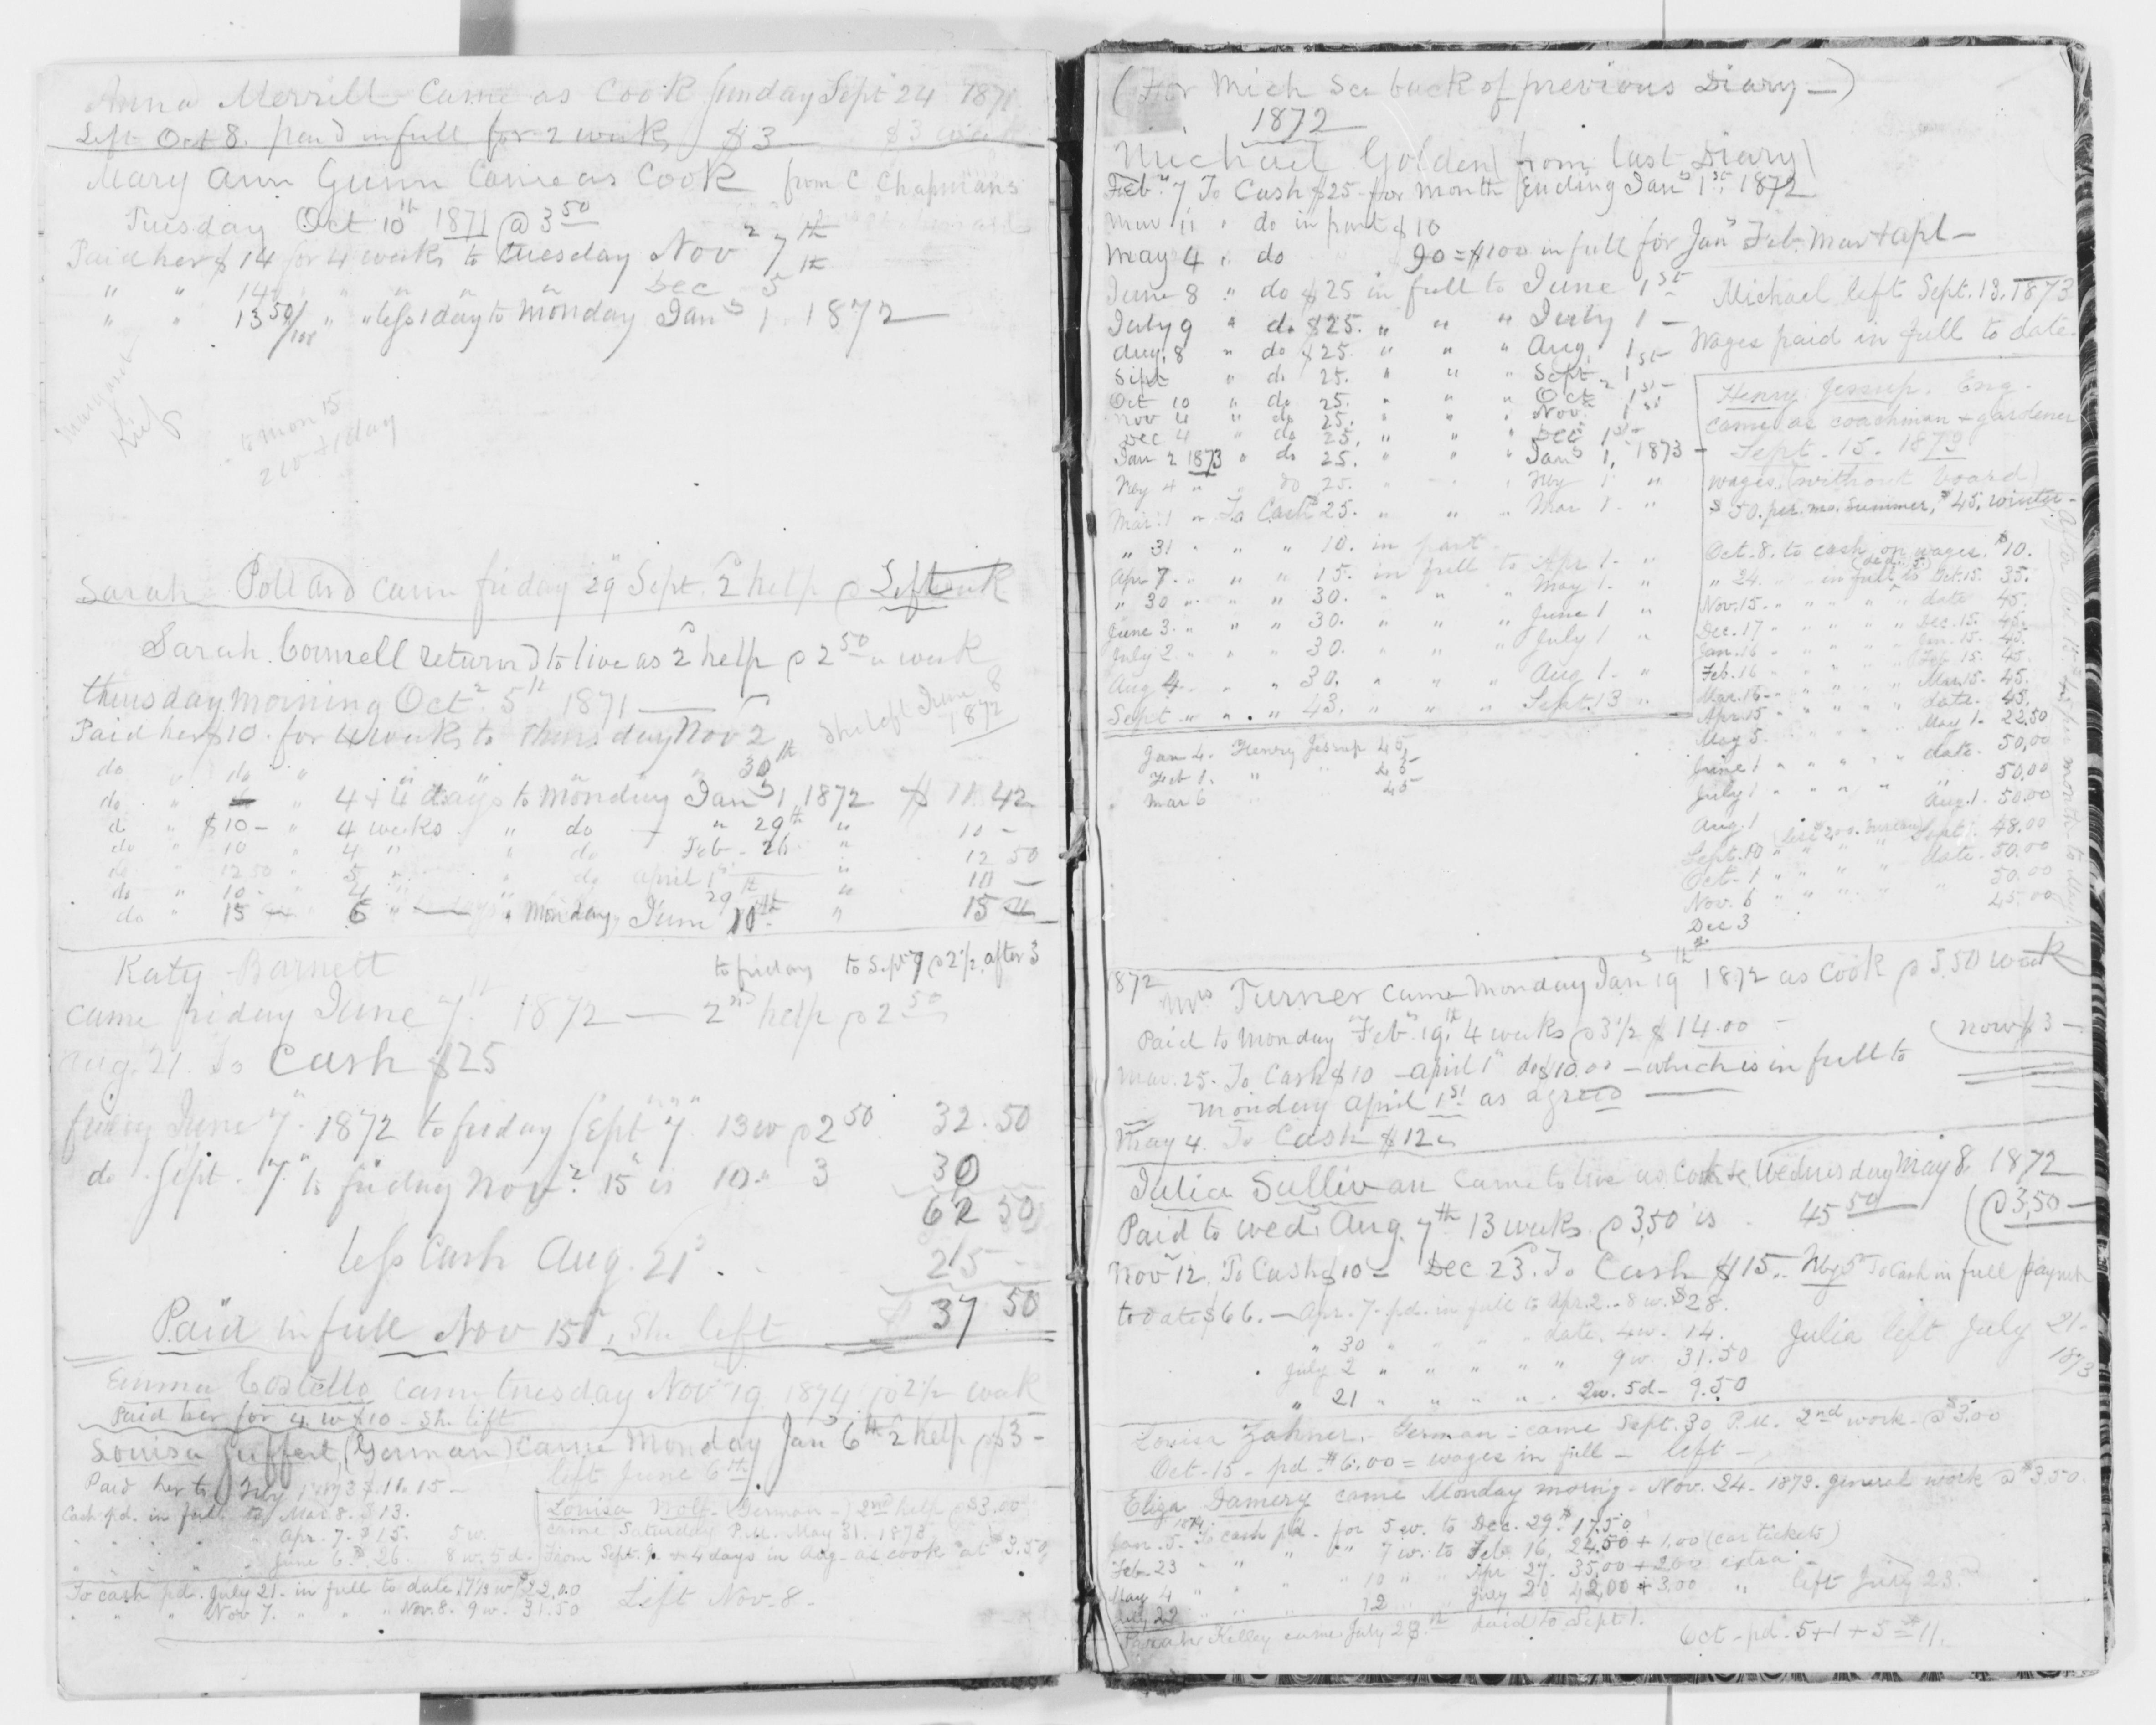 Anna Merrill Came as Cook Sunday Sept 24 1871
Left Oct 8. paid in full for 2 weeks $3 $3 week
Mary Ann Gunn Came as Cook from C Chapman's
Tuesday Oct 10th 1871 @ 3 50
Paid her $14 for 4 weeks to tuesday Nov 7th
" " 14 " " " " " Dec 5th
" " 13 50/100 " " less 1 day to Monday Jan 1. 1872
Margaret
to mon 15
2 w + 1 day
Sarah Pollard came friday 29 Sept. 2d help Left
Sarah Connell returnd to live as 2d help @ 2 50 a week
thursday morning Oct. 5th 1871
She left June 8 1872
Paid her $10. for 4 weeks to Thursday Nov 2
do " do " " " " " 30th
do " " 4 + 4 days to Monday Jan 1, 1872 $11 42
do " $10 - " 4 weeks " do " 29th " 10 -
do " 10 " 4 " " do Feb. 26 "
do " 12 50 " 5 " " do april 1st " 12 50
do " 10 - " 4 " " 29th " 10 -
do " 15 - 6 " Monday, June 10th " 15
Katy Barnett to friday to Sept 7 @ 2 1/2, after 3
came friday June 7" 1872 — 2nd help @ 2 50
Aug. 21. To Cash $25
friday June 7" 1872 to friday Sept 7" 13 w @ 2 50 32.50
do. Sept. 7." to friday Nov. 15 is 10 " 3 30
62 50
less Cash Aug. 21. 25 -
$ 37 50
Paid in full Nov 15, She left
Emma Costello came tuesday Nov 19 @ 2 1/2 week
Paid her for 4 w $10 - She left
Louisa Juffert, (German) came Monday Jan 6th 2d help @ $3 -
left June 6th
Paid her to Feby 1873 $11.15 -
Cash pd. in full to Mar 8. $13.
" " " " Apr. 7. $15. 5 w.
" " " " June 6. $26. 8 w. 5 d.
Louisa Wolf (German -) 2nd help @ $3.00
came Saturday P.M. May 31. 1873
From Sept. 1. + 4 days in Aug. as cook at $3.50
To cash pd. July 21 - in full to date 7 1/3 w $22.00
" " " Nov 7. " " " Nov. 8. 9 w. 31.50
Left Nov. 8 -
(For Mich see back of previous Diary —)
1872
Michael Golden (from last Diary)
Feb. 7 To Cash $25 for month Ending Jan 1st 1872
Mar 11 " do in part $10
May 4 " do 90 = $100 in full for Jan Feb. Mar + apl -
June 8 " do $25 in full to June 1st
July 9 " do $25. " " " July 1 -
Aug. 8 " do $25. " " " Aug. 1st
Sept " do 25. " " " Sept. 1st
Oct 10 " do 25. " " " Oct 1st
Nov 4 " do 25. " " " Nov. 1st
Dec 4 " do 25. " " " Dec 1st
Jan 2 1873 " do 25. " " " Jan 1, 1873 -
Feby 4 " " do 25. " " " Feby 1 "
Mar. 1 " To Cash 25. " " " Mar 1. "
" 31 " " " 10. in part -
Apr 7. " " " 15. in full to Apr 1. "
" 30 " " " 30. " " " May 1. "
June 3. " " " 30. " " " June 1 "
July 2 " " " 30. " " " July 1 "
Aug 4 - " " 30. " " " Aug 1. "
Sept " " " " 43. " " " Sept. 13 "
Jan 4. Henry Jessup 45,
Feb 1. " " 45
Mar 6 " 45
Michael left Sept. 13. 1873
Wages paid in full to date -
Henry Jessup. Eng.
came as coachman + gardener
Sept. 15. 1873
wages, (without board)
$50. per. mo. Summer, $45, winter -
Oct. 8. to cash on wages. $10.
" 24. " in full to Oct. 15. 35.
Nov. 15 - " " " " date 45.
Dec. 17 " " " " Dec. 15. 45.
Jan. 16 " " " " Jan. 15. 45.
Feb. 16 " " " " Feb 15. 45
Mar. 16 - " " " " Mar. 15. 45.
Apr. 15 " " " " date. 45.
May 5. " " " " May 1. 22.50
June 1 " " " " date. 50.00
July 1 " " " " " 50.00
Aug. 1 Aug. 1. 50.00
Sept. 10 " less $2.00. Sept 1. 48.00
Oct. 1 " " " " date. 50.00
Nov. 6 " " " " " 50.00
Dec 3 45.00
1872
Mrs Turner came Monday Jan 19th 1872 as Cook @ 3.50 week
Paid to Monday Feb. 19. 4 weeks @ 3 1/2 $14.00 (now $3 -
Mar. 25. To Cash $10 - april 1st do $10.00 - which is in full to
Monday April 1st as agreed
May 4. To Cash $12
Julia Sullivan Came to live as Cook &c Wednesday May 8, 1872
Paid to Wed. Aug. 7th 13 weeks. @ 3,50 is 45 50 (@ 3,50 -
Nov 12. To Cash $10 - Dec 23. To Cash $15. Feby 5 To Cash in full payment
to date $66. - Apr. 7. pd. in full to Apr. 2. - 8 w. $28.
" 30 " " " " date. 4 w. 14.
July 2 " " " " " 9 w. 31.50
" 21 " " " " " 2 w. 5 d - 9.50
Julia left July 21. 1873
Louisa Zahner. - German - came Sept. 30 P.M. 2nd work - @ $3.00
Oct. 15 - pd. $6.00 = wages in full - left -
Eliza Damery came Monday morng - Nov. 24. 1873. general work @ $3.50.
1874
Jan. 5. To cash pd. for 5 w. to Dec. 29. $17.50
Feb. 23 " " " " 7 w. to Feb. 16, 24.50 + 1.00 (car tickets)
May 4 " " " " 10 " " Apr 27. 35,00 + 2,00 extra -
July 22 " " " 12 " July 20 42,00 + 3,00 " left July 23
Sarah Kelley came July 28th paid to Sept 1.
Oct - pd. 5 + 1 + 5 = $11.